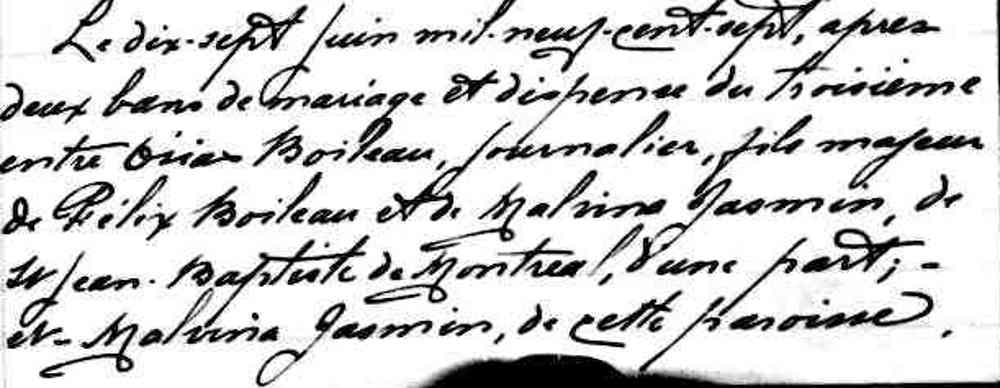 Le dix-sept juin mil-neuf-cent-sept, après
deux bans de mariage et dispense du troisième
entre Osias Boileau, journalier, fils majeur
de Félix Boileau et de Malvina Jasmin, de
St Jean-Baptiste de Montréal, d'une part; -
et - Malvina Jasmin, de cette paroisse,